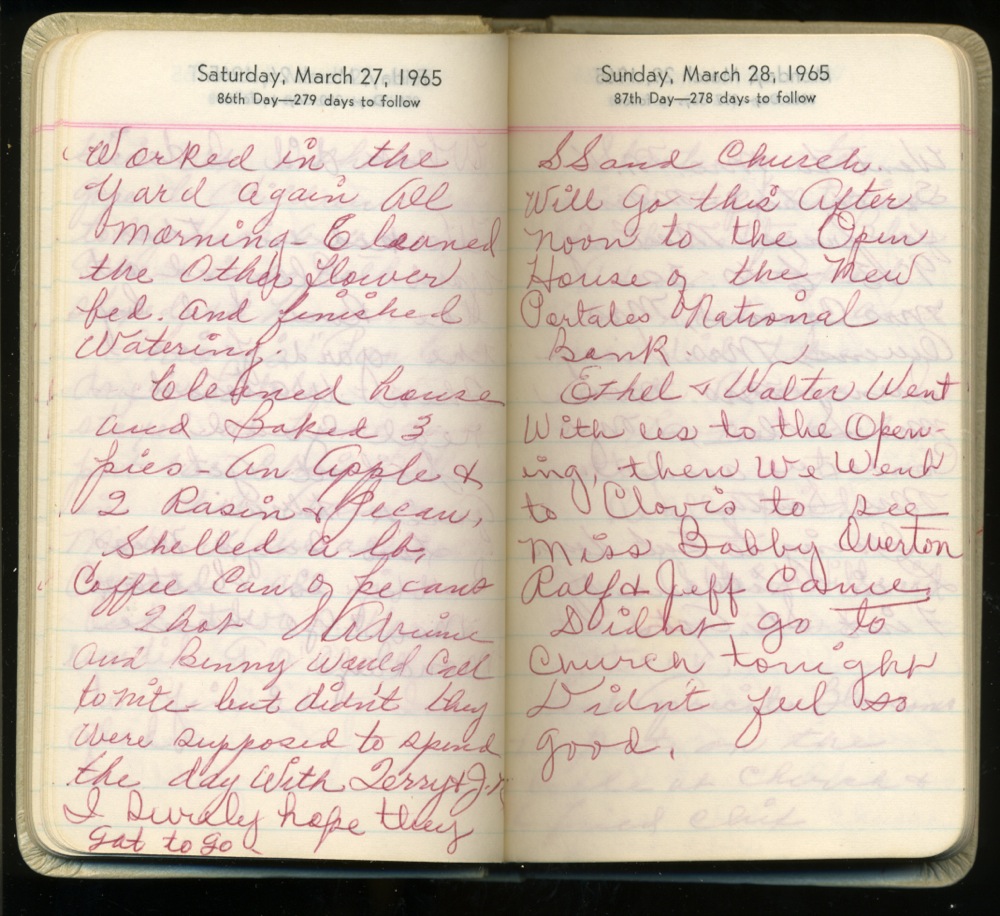 Saturday, March 27, 1965
86th Day—279 days to follow
Worked in the
Yard again All
morning - Cleaned
the Other Flower
bed. and finished
Watering.
Cleaned house
and Baked 3
pies - An Apple &
2 Rasin & Pecan,
Shelled a lb,
Coffee Can of pecans
and Benny Would Call
tonite - but didn't they
Were supposed to spend
the day With Terry & J.
I Surely hope they
got to go
Sunday, March 28, 1965
87th Day—278 days to follow
SS and Church.
Will Go this After
noon to the Open
House of the New
Portales National
Bank.
Ethel & Walter Went
With us to the Open-
ing, then We Went
to Clovis to see
Miss Bobby Overton
Ralf & Jeff Came
Didnt go to
Church tonight
Didnt feel so
good.